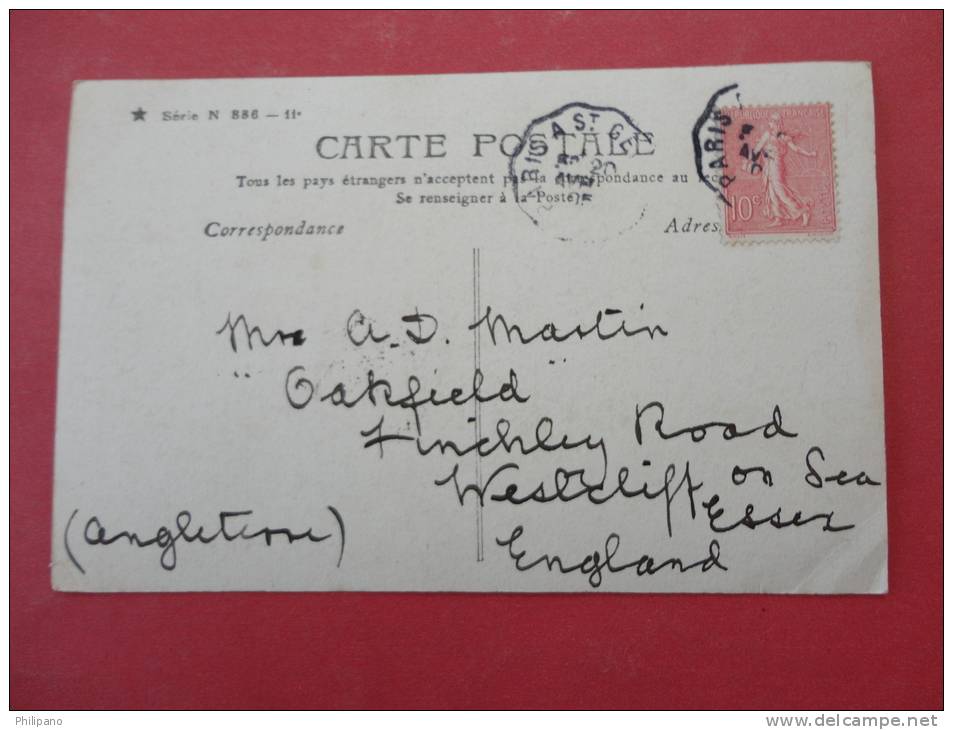 ★ Série N 886 — 11e
CARTE POSTALE
Tous les pays étrangers n'acceptent pas la correspondance au
Se renseigner à la Poste
Correspondance
Adres
PARIS A ST GE
PARIS
REPUBLIQUE FRANÇAISE
10c
Mrs A. D. Martin
"Oakfield"
Finchley Road
Westcliff on Sea
Essex
England
(Angleterre)
Philipano
www.delcampe.net